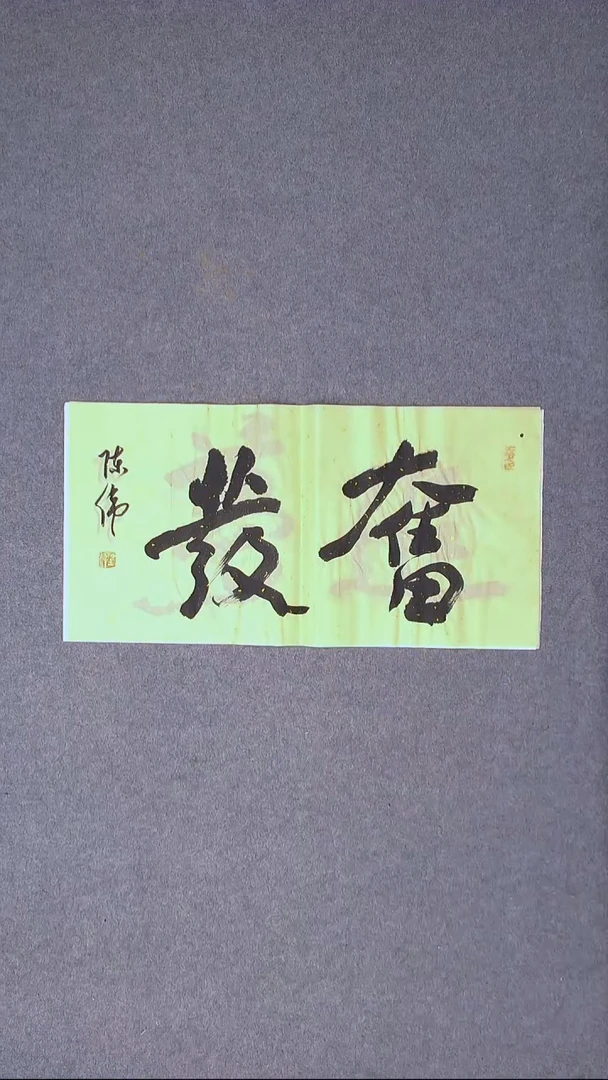 奮發
陈伟